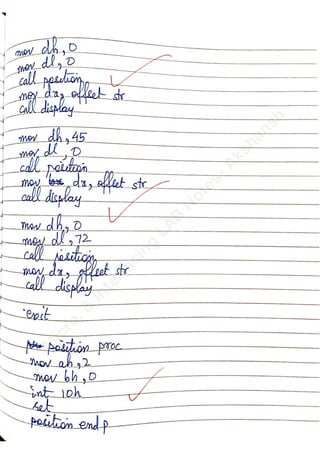 mov dh, 0
mov dl, 0
call position
mov dx, offset str
call display
mov dh, 45
mov dl, 0
call position
mov dx, offset str
call display
mov dh, 0
mov dl, 72
call position
mov dx, offset str
call display
exit
position proc
mov ah, 2
mov bh, 0
int 10h
ret
position endp
LAB Notes - Akshansh